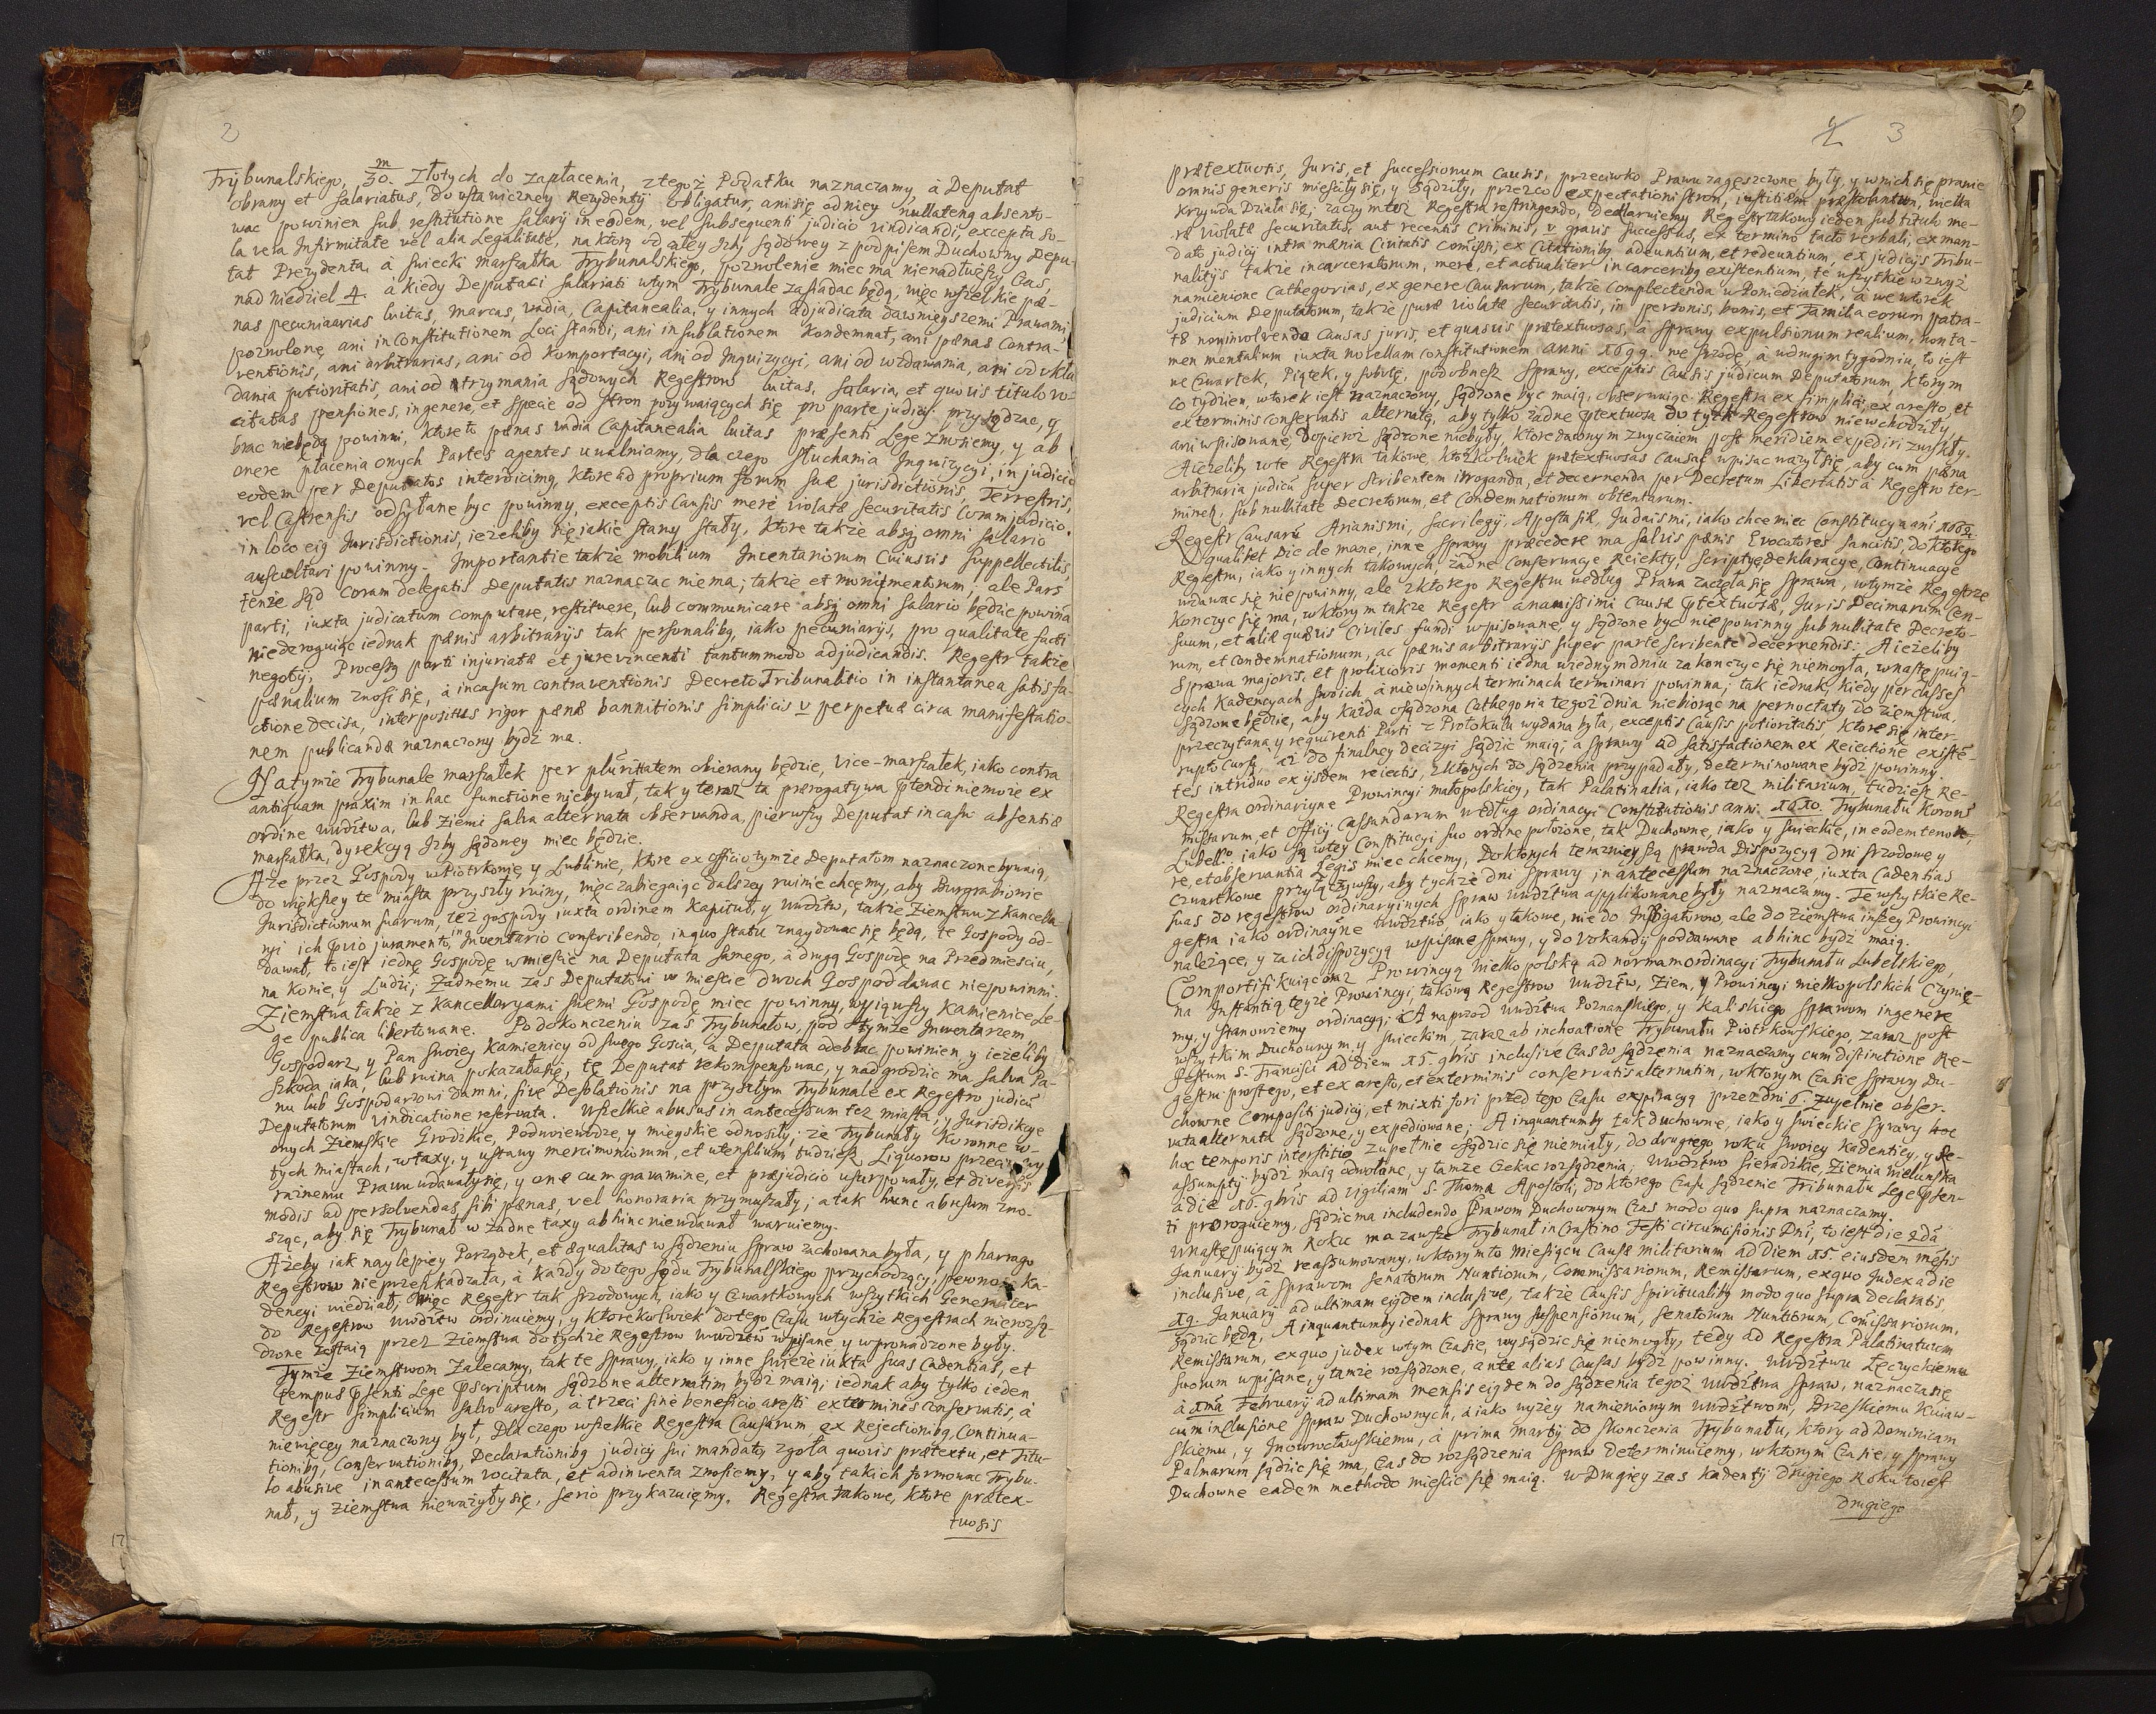 2
Trÿbunalskiego, m/30. Złotych do zapłacenia, ztegoż Podatku naznaczamy, à Deputat
obrany et Salariatus, do ustawiczney Rezydentÿ obligatur, ani się odniey nullateng absento-
wac powinien sub restitutione Salarÿ in eodem, vel subsequenti judicio vindicandi, excepta so-
la vera Infirmitate vel alia Legalitate, na ktorą od całey Izby sądowey z podpisem Duchowny Depu-
tat Prezydenta, à swiecki marszałka Trybunalskiego, pozwolenie miec ma nienadłuższy Czas,
nad niedziel 4. à kiedy Deputaci Salariati wtym Trybunale zasiadac będą, więc wszelkie pæ-
nas pecuniarias luitas, marcas, vadia, Capitanealia, y innych adjudicata dawnieyszemi Prawami,
pozwolone, ani in Constitutionem Loci standi, ani in sublationem Kondemnat, ani pænas Contra-
ventionis, ani arbitrarias, ani od Komportacyi, ani od Inquizycyi, ani od wzdawania, ani od vkła
dania potioritatis, ani od otrzymania sądowych Regestrow luitas, Salaria, et quovis titulo vo-
citatas pensiones, in genere, et specie od stron pozywaiących się pro parte judicÿ przysądzac, y
brac niebędą powinni, ktore to pænas vadia Capitanealia luitas præsenti Lege znosiemy, y ab
onere płacenia onych Partes agentes uwalniamy, dla czego słuchania Inquizycyi, in judicio
eodem per Deputatos interdicimg, ktore ad proprium forum suæ jurisdictionis, Terrestris,
vel Castrensis odsyłane byc powinny, exceptis Causis merè violatæ securitatis Coram judicio
in loco eig Jurisdictionis, ieżeliby się iakie stany stały, ktore takze absq omni salario
auscultari powinny. Importantie takze mobilium Inventariorum Cuiusvis suppellectilis,
tenże sąd Coram delegatis Deputatis naznaczac nie ma; takze et monimentorum, ale Pars
parti, iuxta judicatum computare, restituere, lub communicare absq omni Salario będzie powinna
niederoguiąc iednak pænis arbitrarÿs tak personalibg, iako pecuniarÿs, pro qualitate facti
negotÿ, Processg parti injuriatæ et jurevincenti tantummodo adjudicandis. Regestr takze
pænalium znosi się, à in casum contraventionis Decreto Tribunalitio in instantanea satisfa-
ctione decisa, interpositus rigor pænæ bannitionis simplicis v perpetuæ circa manifestatio-
nem publicandæ naznaczony bydź ma.
Na tymże Trybunale marszałek per pluritatem obierany będzie, Vice-marszałek, iako contra
antiquam praxim in hac functione niebywał, tak y teraz ta prærogatywa ptendi niemoze ex
ordine wwdztwa, lub Ziemi salva alternata observanda, pierwszy Deputat in casu absentiæ
marszałka, dyrekcyą Izby sądowey miec będzie.
Aże przez Gospody w Piotrkowie y Lublinie, ktore ex officio tymże Deputatom naznaczone bywaią,
do większey te miasta przyszły ruiny, więc zabiegaiąc dalszey ruinie chcemy, aby Burgrabiowie
Jurisdictionum suarum, też gospody iuxta ordinem Kapituł, y wwdztw, takze Ziemstwu z Kancella-
ryi ich prio juramento, in Inventario conscribendo, in quo statu znaydowac się będą, te Gospody od-
dawał, to iest iednę Gospodę w miescie na Deputata samego, à drugą Gospodę na Przedmiesciu,
na Konie, y Ludzi; Zadnemu zas Deputatowi w miescie dwoch Gospod dawac niepowinni.
Ziemstwa takze z Kancellaryami swemi Gospodę miec powinny, wyiąwszy Kamienice Le-
ge publica libertowane. Po dokonczeniu zas Trybunałow, pod tymże Inwentarzem
Gospodarz, y Pan swoiey Kamienicy od swego Goscia, à Deputata odebrac powinien, y ieżeliby
szkoda iaka, lub ruina pokazała się, tę Deputat rekompensowac, y nadgrodzic ma salva Pa-
nu lub Gospodarzowi damni, sive Desolationis na przyszłym Trybunale ex Regestro judicÿ
Deputatorum vindicatione reservata. Wszelkie abusus in antecessum też miasta, y Jurisdikcye
onych Ziemskie Grodzkie, Podwoiewodze, y mieyskie odnosiły; że Trybunały Koronne w-
tych miastach, w taxy, y ustawy mercimoniorum, et utensilium tudziesz Liquorow przeciwny
raznemu Prawu wdawały się, y one cum gravamine, et præjudicio usurpowały, et diversis
modis ad persolvendas sibi pænas, vel honoraria przymuszały; a tak hunc abusum zno-
sząc, aby się Trybunał w żadne taxy abhinc niewdawał waruiemy.
Ażeby iak naylepiey Porządek, et æqualitas w sądzeniu spraw zachowana była, y pharrago
Regestrow nieprzeszkadzała, à każdy do tego sądu Trybunalskiego przychodzący, pewność Ka-
dencyi wiedział, więc Regestr tak srzodowych, iako y Czwartkowych wszytkich Generaliter
do Regestrow wwdztw ordinuiemy, y ktorekolwiek do tego Czasu wtychże Regestrach nierozsą-
dzone zostaią przez Ziemstwa do tychże Regestrow wwdztw wpisane, y wprowadzone były.
Tymże Ziemstwom Zalecamy, tak te sprawy, iako y inne swieże iuxta suas Cadentias, et
tempus psenti Lege pscriptum sądzone alternatim bydź maią; iednak aby tylko ieden
Regestr simplicium salvo aresto, à trzeci sine beneficio aresti ex terminis conservatis, à
niewięcey naznaczony był, Dla czego wszelkie Regestra Causarum ex Rejectionibg, Continua-
tionibg, Conservationibg, Declarationibg judicÿ sui mandato, zgoła quovis prætextu, et Titu-
lo abusive in antecessum vocitata, et adinventa znosiemy, y aby takich formowac Trybu-
nał, y Ziemstwa nieważyły się, serio przykazuiemy. Regestra takowe, ktore prætex-
tuosis
3
prætextuosis, Juris, et successionum Causis, przeciwko Prawu zagęszczone były, y w nich się prawie
omnis generis miesciły się, y sądziły, przezco expectationi stron, iustitiam præstolantium, wielka
krzywda Działa się; zaczym też Regestra restringendo, Declaruiemy Regestr takowy ieden sub titulo me-
ræ violatæ securitatis, aut recentis Criminis, v gravis successus, ex termino tacto verbali, ex man-
dato judicÿ intra mænia Civitatis Comissi, ex Citationibg adeuntium, et redeuntium, ex judicÿs Tribu-
nalitÿs takze incarceratorum, merè, et actualiter in carceribg existentium, te wszytkie wzwyż
namienione Cathegorias, ex genere Causarum, takze Complectenda w Poniedziałek, à we wtorek
judicium Deputatorum, takze puræ violatæ securitatis, in personis, bonis, et familia eorum patra-
tæ non involvendo Causas juris, et quasvis prætextuosas, à sprawy expulsionum realium, non ta-
men mentalium iuxta novellam Constitutionem anni 1699. we srzodę, à w drugim tygodniu, to iest
we Czwartek, Piątek, y sobotę, podobnesz sprawy, exceptis Causis judicum Deputatorum, ktorym
co tydzien, wtorek iest naznaczony, sądzone byc maią, observuiąc Regestra ex simplici, ex aresto, et
ex terminis conservatis alternatę, aby tylko żadne ptextuosa do tych Regestrow niewchodziły,
ani wpisowane, dopieroż sądzone niebyły, ktore dawnym zwyczaiem post meridiem expediri zwykły.
A ieżeliby w te Regestra takowe, ktożkolwiek prætextuosas Causas wpisac ważył się, aby cum pæna
arbitraria judicÿ super scribentem irroganda, et decernenda per Decretum Libertatis à Regestro ter-
mineḡ, sub nullitate Decretorum, et Condemnationum obtentarum.
Regestr Causarū Arianismi, sacrilegÿ, Apostasiæ, Judaismi, iako chce miec Constitucya añi 1662. do ktorego
qualibet Die de mane, inne sprawy præcedere ma salvis pænis Evocatores sancitis,
Regestru, iako y innych takowych, żadne Conserwacye Reiekty, Scriptye, deklaracye, Continuacye
wdawac się niepowinny, ale z ktorego Regestru według Prawa zaczęła się sprawa, wtymże Regestrze
konczyc się ma, w ktorym takze Regestr anamissimi Causæ ptextuosæ, Juris Decimarum Cen-
suum, et aliæ quævis Civiles fundi wpisowane, y sądzone byc niepowinny sub nullitate Decreto-
rum, et condemnationum, ac pænis arbitrarÿs super parte scribente decernendis. A ieżeliby
sprawa majoris, et prolixioris momenti iedna wiednym dniu zakonczyc się niemogła, w następuią-
cych Kadencyach swoich à niewinnych terminach terminari powinna; tak iednak, kiedy per classes
sądzone będzie, aby każda osądzona Cathegoria tegoż dnia niebiorąc na pernoctaty do ziemstwa,
przeczytana, y requirenti Parti z Protokułu wydana była, exceptis Causis potioritatis, ktore się inter-
rupto Cursu, aż do finalney decizyi sądzic maią; à sprawy ad satisfactionem ex Reiectione existē-
tes in triduo ex ijsdem reiectis, z ktorych do sądzenia przypadały, determinowane bydź powinny.
Regestra ordinaryine Prowincyi małopolskiey, tak Palatinalia, iako też militarium, tudziesz Re-
missarum, et Officÿ Cassandorum według ordinacyi Constitutionis anni. 1670. Trybunału Koronº
Lubelº. iako są w tey Constitucyi suo ordine położone, tak Duchowne, iako y swieckie, in eodem teno-
re, et observantia Legis miec chcemy, Do ktorych teraznieyszą prawda Dispozycyą dni srzodowe, y
czwartkowe przyłączywszy, aby tychże dni sprawy in antecessum naznaczone, iuxta Cadentias
suas do regestrow ordinaryinych spraw wwdztwa applikowane były naznaczamy. Te wszytkie Re-
gestra iako ordinaryne wwdztw iako y takowe, nie do Instigatorow, ale do Ziemstwa inszey Prowincyi
należące, y za ich dispozycyą wpisane sprawy, y do Vokandÿ poddawane abhinc bydź maią.
Comportifikuiąc oraz Prowincyą wielkopolską ad normam ordinacyi Trybunału Lubelskiego,
na Instantią teyże Prowincyi, takową Regestrow wwdztw, Ziem, y Prowincyi wielkopolskich Czynie-
my, y stanowiemy ordinacyą; A naprzod wwdztwa Poznanskiego, y Kaliskiego sprawom in genere
wszytkim Duchownym, y swieckim, zaraz ab inchoatione Trybunału Piotrkowskiego, zaraz post
festum S. Francisci ad diem 15. 9bris inclusive Czas do sądzenia naznaczamy cum distinctione Re-
gestru prostego, et ex aresto, et ex terminis conservatis alternatim, w ktorym Czasie sprawy Du-
chowne Compositi judicÿ, et mixti fori przed tego Czasu expiracyą przez dni 6. zupełnie obser-
vata alternata sądzone, y expediowane; A inquantumby tak duchowne, iako y swieckie sprawy hoc
hoc temporis interstitio zupełnie osądzic się niemiały, do drugiego roku swoiey Kadentiey, y Re-
assumpty bydź maią odwołane, y tamże Czekac rozsądzenia; wwdztwo Sieradzkie, Ziemia wielunska
a die 16. 9bris ad vigiliam S. Thomæ Apostoli, do ktorego Czasu sądzenie Tribunału Lege psen-
ti proroguiemy, sądzic ma includendo sprawom Duchownym Czas modo quo supra naznaczamy.
w następuiącym Roku ma zawsze Trybunał in Crastino Festi Circumcisionis Dni, to iest die 2da
Januarÿ bydź reassumowany, w ktorym to Miesiącu Causæ militarium ad diem 15. eiusdem mēsis
inclusive, à sprawom Senatorum Nuntiorum, Commissariorum, Remissarum, ex quo Judex a die
19. Januarÿ ad ultimam eigdem inclusive, takze Causis spiritualibg modo quo supra declaratis
sądzic będą. A inquantumby iednak sprawy suspensionum, Senatorum Nuntiorum, Comissariorum,
Remissarum, ex quo judex w tym Czasie, wysądzic się niemogły, tedy ad Regestra Palatinatuum
suorum wpisane, y tamże rozsądzone, ante alias Causas bydź powinny. wwdztwu Łęczyckiemu
à 1mâ Februarÿ ad ultimam mensis eigdem do sądzenia tegoż wwdztwa spraw, naznacza się
cum inclusione spraw Duchownych, à iako wyżey namienionym wwdztwom, Brzeskiemu Kuiaw-
skiemu, y Inowrocławskiemu, à prima Martÿ do skonczenia Trybunału, ktory ad Dominicam
Palmarum sądzic się ma, Czas do rozsądzenia spraw determinuiemy, w ktorym Czasie, y sprawy
Duchowne eadem methodo miescic się maią. W Drugiey zas Kadentÿ drugiego Roku to iest
drugiego